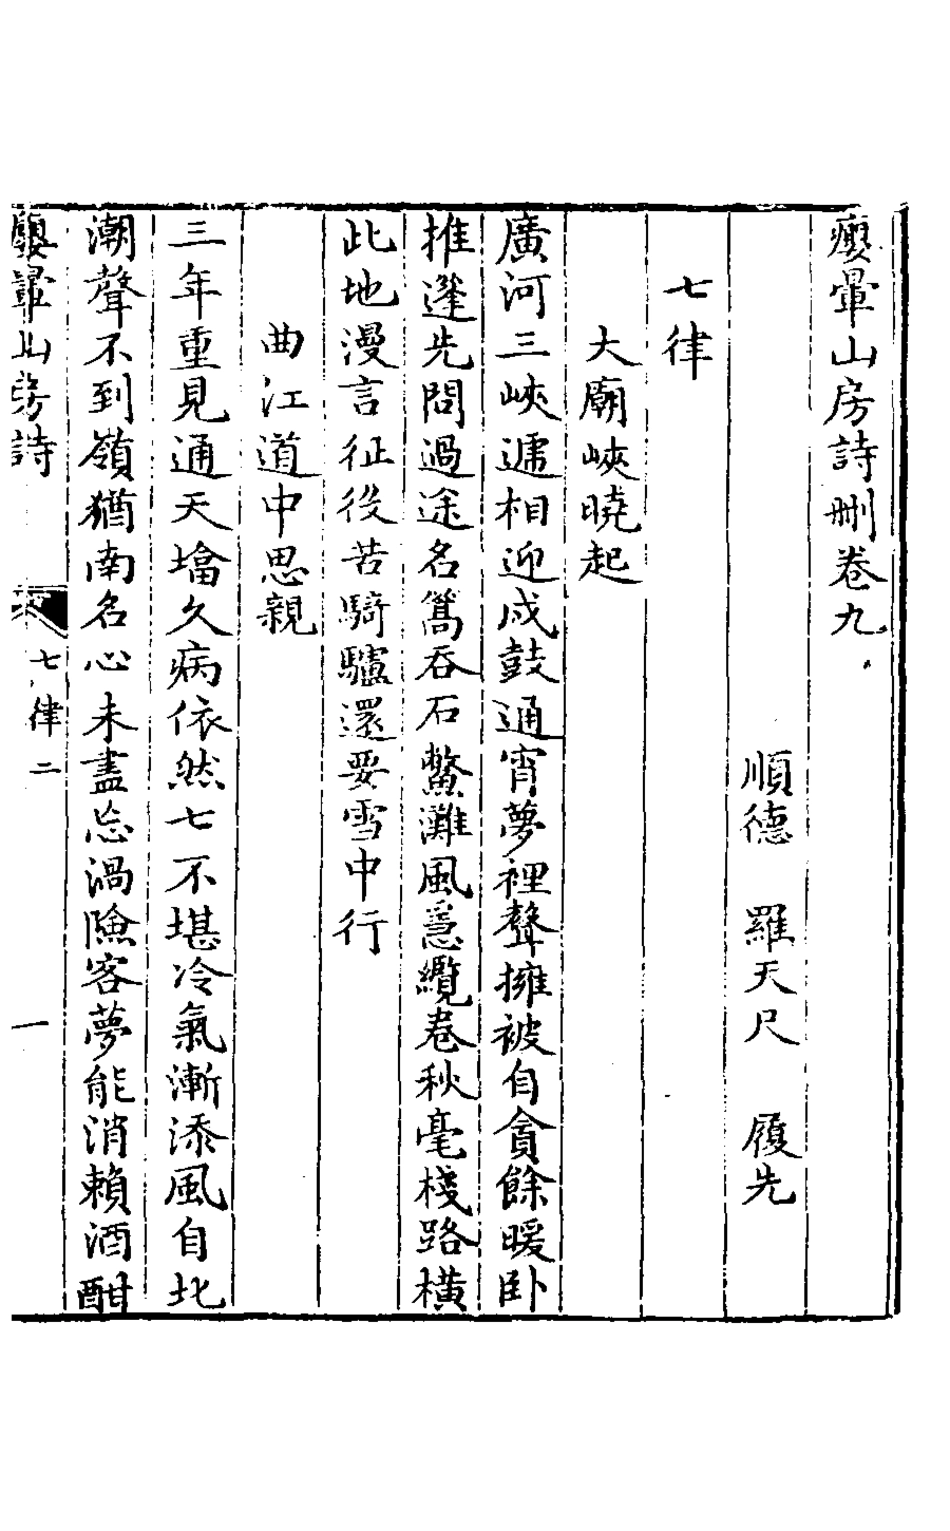 癭暈山房詩刪卷九
順德　羅天尺　履先
七律
大廟峽曉起
廣河三峽遞相迎戍鼓通宵夢裡聲擁被自貪餘暖臥
推篷先問過途名篙吞石鱉灘風急纜卷秋毫棧路橫
此地漫言征役苦騎驢還要雪中行
曲江道中思親
三年重見通天墖久病依然七不堪冷氣漸添風自北
潮聲不到嶺猶南名心未盡忘渦險客夢能消賴酒酣
癭暈山房詩
七律二
一